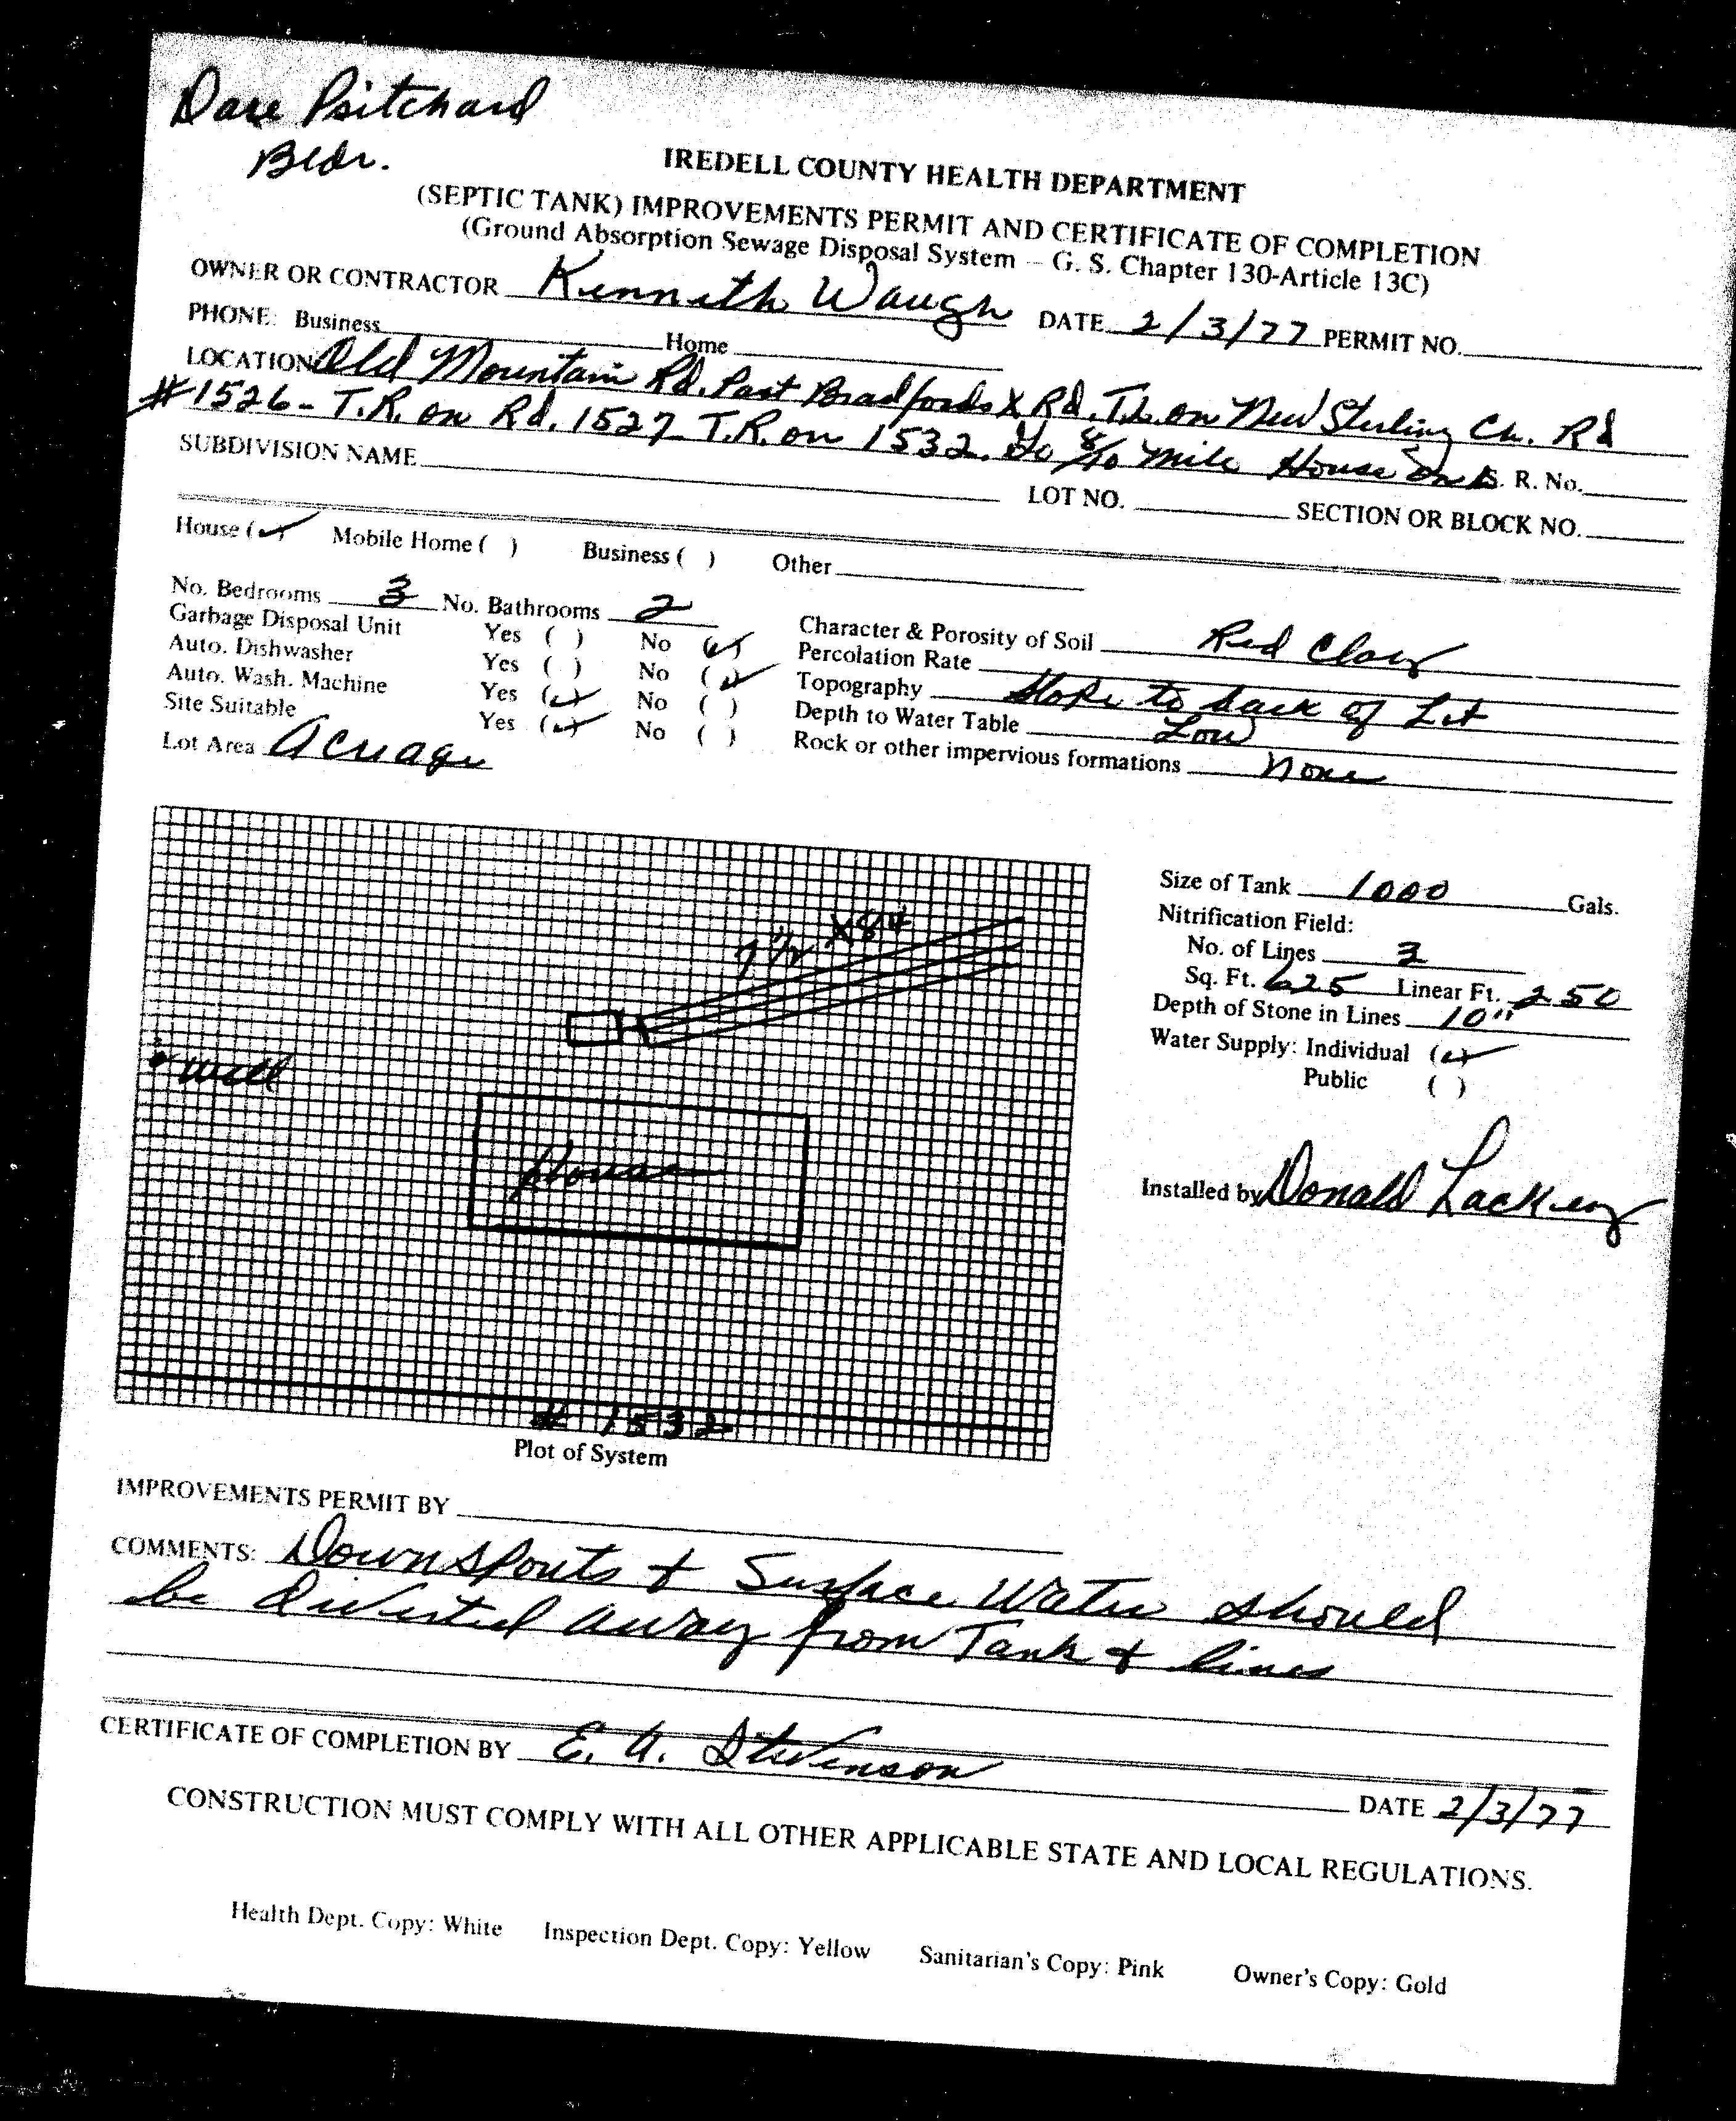 Dave Pritchard
Bldr.
IREDELL COUNTY HEALTH DEPARTMENT
(SEPTIC TANK) IMPROVEMENTS PERMIT AND CERTIFICATE OF COMPLETION
(Ground Absorption Sewage Disposal System — G. S. Chapter 130-Article 13C)
OWNER OR CONTRACTOR Kenneth Waugh DATE 2/3/77 PERMIT NO.
PHONE: Business Home
LOCATION Old Mountain Rd. Past Bradfords X Rd. T.L. on New Sterling Ch. Rd
#1526 - T.R. on Rd. 1527 T.R. on 1532. Go 8/10 mile House on S. R. No.
SUBDIVISION NAME LOT NO. SECTION OR BLOCK NO.
House (✓) Mobile Home ( ) Business ( ) Other
No. Bedrooms 3 No. Bathrooms 2
Garbage Disposal Unit Yes ( ) No (✓) Character & Porosity of Soil Red Clay
Auto. Dishwasher Yes ( ) No (✓) Percolation Rate
Auto. Wash. Machine Yes (✓) No ( ) Topography Slope to back of Lot
Site Suitable Yes (✓) No ( ) Depth to Water Table Low
Lot Area Acreage Rock or other impervious formations None
Size of Tank 1000 Gals.
Nitrification Field:
No. of Lines 3
Sq. Ft. 625 Linear Ft. 250
Depth of Stone in Lines 10"
Water Supply: Individual (✓)
Public ( )
Installed by Donald Lackey
7 1/2 X 84
Well
House
# 1532
Plot of System
IMPROVEMENTS PERMIT BY
COMMENTS: Downspouts & Surface Water should
be diverted away from Tank & lines
CERTIFICATE OF COMPLETION BY E. A. Stevenson DATE 2/3/77
CONSTRUCTION MUST COMPLY WITH ALL OTHER APPLICABLE STATE AND LOCAL REGULATIONS.
Health Dept. Copy: White Inspection Dept. Copy: Yellow Sanitarian's Copy: Pink Owner's Copy: Gold